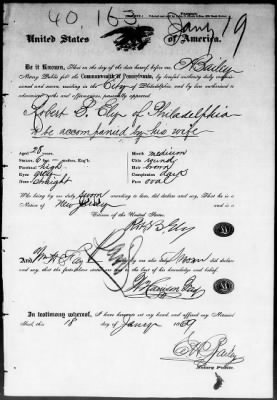 40,163
Jany 19
United States of America.
Be it Known, That on the day of the date hereof, before me E H Bailey
Notary Public for the Commonwealth of Pennsylvania, by lawful authority duly
and sworn, residing in the City of Philadelphia and by law authorized to administer
oaths and affirmations, personally appeared
Robert B. Ely of Philadelphia
to be accompanied by his wife
Age, 28 years.
Stature, 6 feet inches, Eng'h
Forehead, high
Eyes, grey
Nose, straight
Mouth, medium
Chin, round
Hair, brown
Complexion, dark
Face, oval
Who being by me duly sworn according to law, did declare and say, That he is a
Native of New Jersey
Citizen of the United States.
Robt B. Ely
And by me also duly sworn did declare
and say, that the facts above stated are true to the best of his knowledge and belief.
In testimony whereof, I have hereunto set my hand and affixed my Notarial
Seal, this 18 day of Jany 1869
E H Bailey
Notary Public.